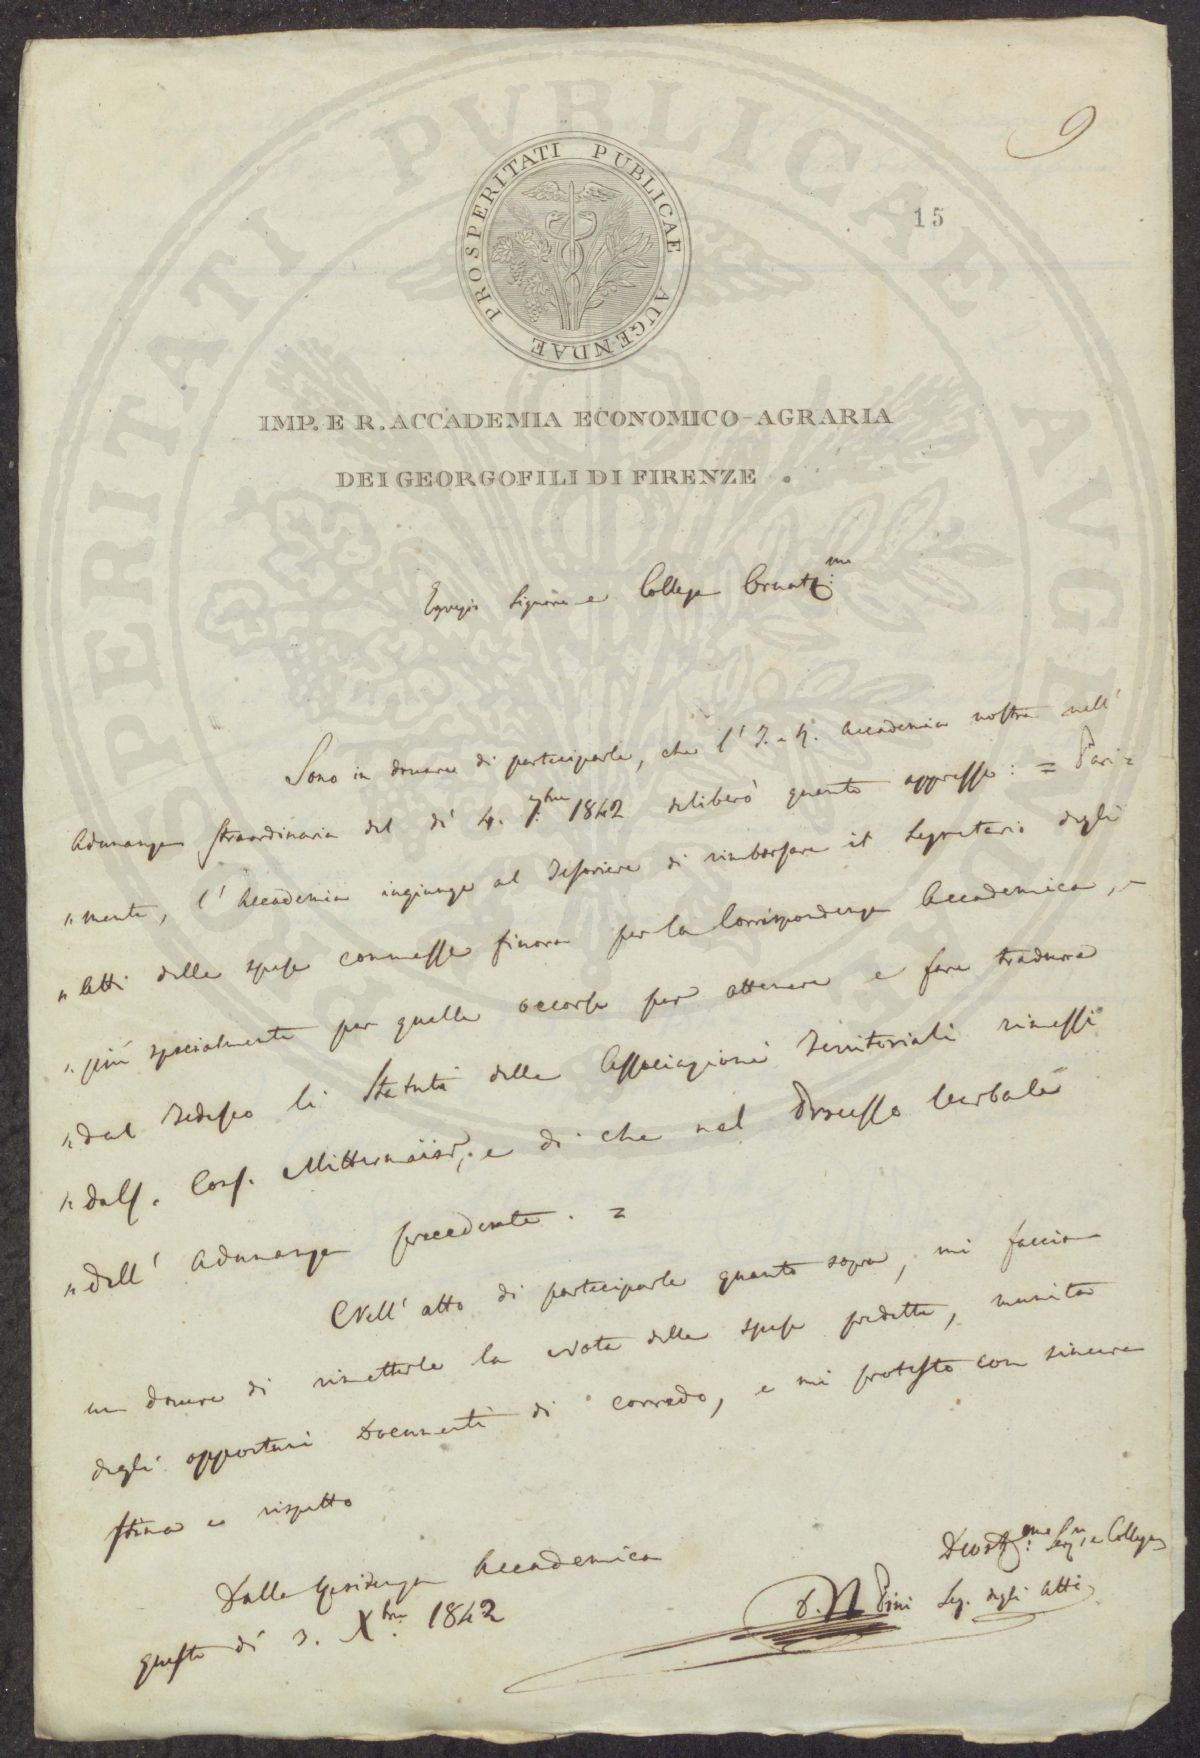 9
15
PROSPERITATI PUBLICAE AUGENDAE
IMP. E R. ACCADEMIA ECONOMICO-AGRARIA
DEI GEORGOFILI DI FIRENZE.
Egregio Signore e Collega Ornat:mo
Sono in dovere di parteciparle, che l' I. e R. Accademia nostra nell'
Adunanza straordinaria del dì 4. 7:bre 1842 deliberò quanto appresso: = Pari=
" mente, l' Accademia ingiunge al Tesoriere di rimborsare il Segretario degli
" Atti delle spese commesse finora per la Corrispondenza Accademica, -
" più specialmente per quelle occorse per ottenere e fare tradurre
" dal Tedesco li Statuti delle Associazioni Territoriali rimessi
" dal Conf. Mittermaier, e di che nel Processo Verbale
" dell' Adunanza precedente. =
Nell' atto di parteciparle quanto sopra, mi faccio
un dovere di rimetterle la Nota delle spese predette, munita
degli opportuni Documenti di corredo, e mi protesto con sincera
stima e rispetto
Dalla Residenza Accademica
questo dì 3. X:bre 1842
Devot:mo e Collega
D. N Pini Seg. degli Atti